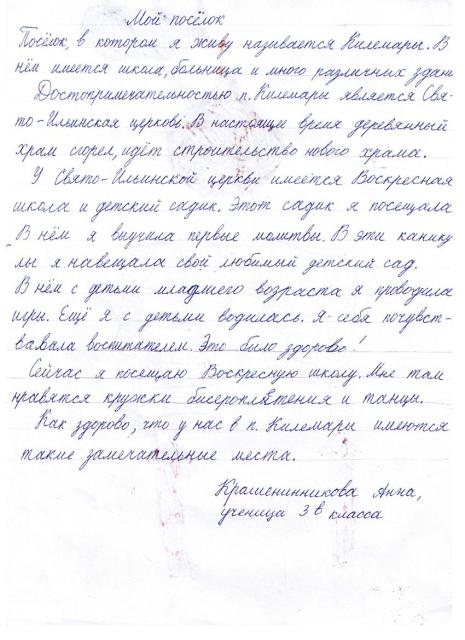 Мой посёлок
Посёлок, в котором я живу называется Килемары. В
нём имеется школа, больница и много различных здани
Достопримечательностью п. Килемары является Свя-
то-Ильинская церковь. В настоящие время деревянный
храм сгорел, идёт строительство нового храма.
У Свято-Ильинской церкви имеется Воскресная
школа и детский садик. Этот садик я посещала
В нём я выучила первые молитвы. В эти канику
лы я навещала свой любимый детский сад.
В нём с детьми младшего возраста я проводила
игры. Ещё я с детьми водилась. Я себя почувст-
вавала воспитателем. Это было здорово!
Сейчас я посещаю Воскресную школу. Мне там
нравятся кружки бисероплетения и танцы.
Как здорово, что у нас в п. Килемары имеются
такие замечательные места.
Крашенинникова Анна,
ученица 3 в класса